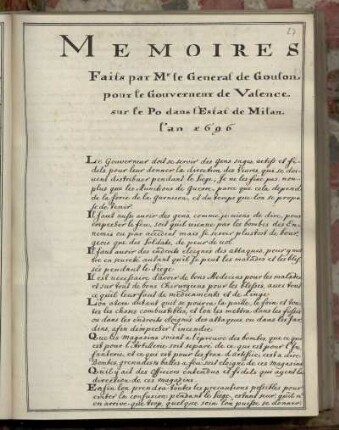 MEMOIRES
Faits par Mr. le General de Gouson.
pour le Gouverneur de Valence.
sur le Po dans l'Estat de Milan.
l'an 1696
Le Gouverneur doit se servir des gens sages, actifs et fi-
deles pour leur donner la direction des vivres, que se doi-
vent distribuer pendant le siege, Je ne les fixe pas non-
plus que les Munitions de Guerre, parce que cela depend
de la force de la garnison, et du temps que l'on se propo-
se de tenir.
Il faut aussi avoir des gens, comme je viens de dire, pour
empescher le feu, soit qu'il vienne par les bombes des En-
nemis ou par accident mais se servir plustost de bour-
geois que des Soldats, de peur de vol
Il faut avoir des endroits eloignés des attaques, pour y met-
tre en seureté autant qu'il se peut les malades et les bles-
sés pendant le Siege
Il est necessaire d'avoir de bons Medecins pour les malades
et sur tout de bons Chirurgiens pour les blessés, avec tout
ce qu'il leur faut de medicaments et de Linge.
L'on aura autant qu'il se pourra la paille, le foin et tou-
tes les choses combustibles, et l'on les mettra dans les fossés
ou dans les endroits eloignés des attaques, ou dans les Jar-
dins, afin d'empecher l'incendie.
Que les Magasins soient a l'epreuve des bombes, que ce qui
est pour l'Artillerie soit separé de ce qui est pour l'In-
fanterie, et ce qui est pour les feux d'artifice, c'est a dire
Bombes, grenades, balles a feu, soit eloigné de ces Magasins
Qu'il y ait des officiers entendus et fideles qui ayent la
direction de ces magasins.
Enfin l'on prendra toutes les precautions possibles pour
eviter la confusion pendant le Siege, estant sur, qu'il n'
en arrive que trop, quelque soin l'on puisse se donner